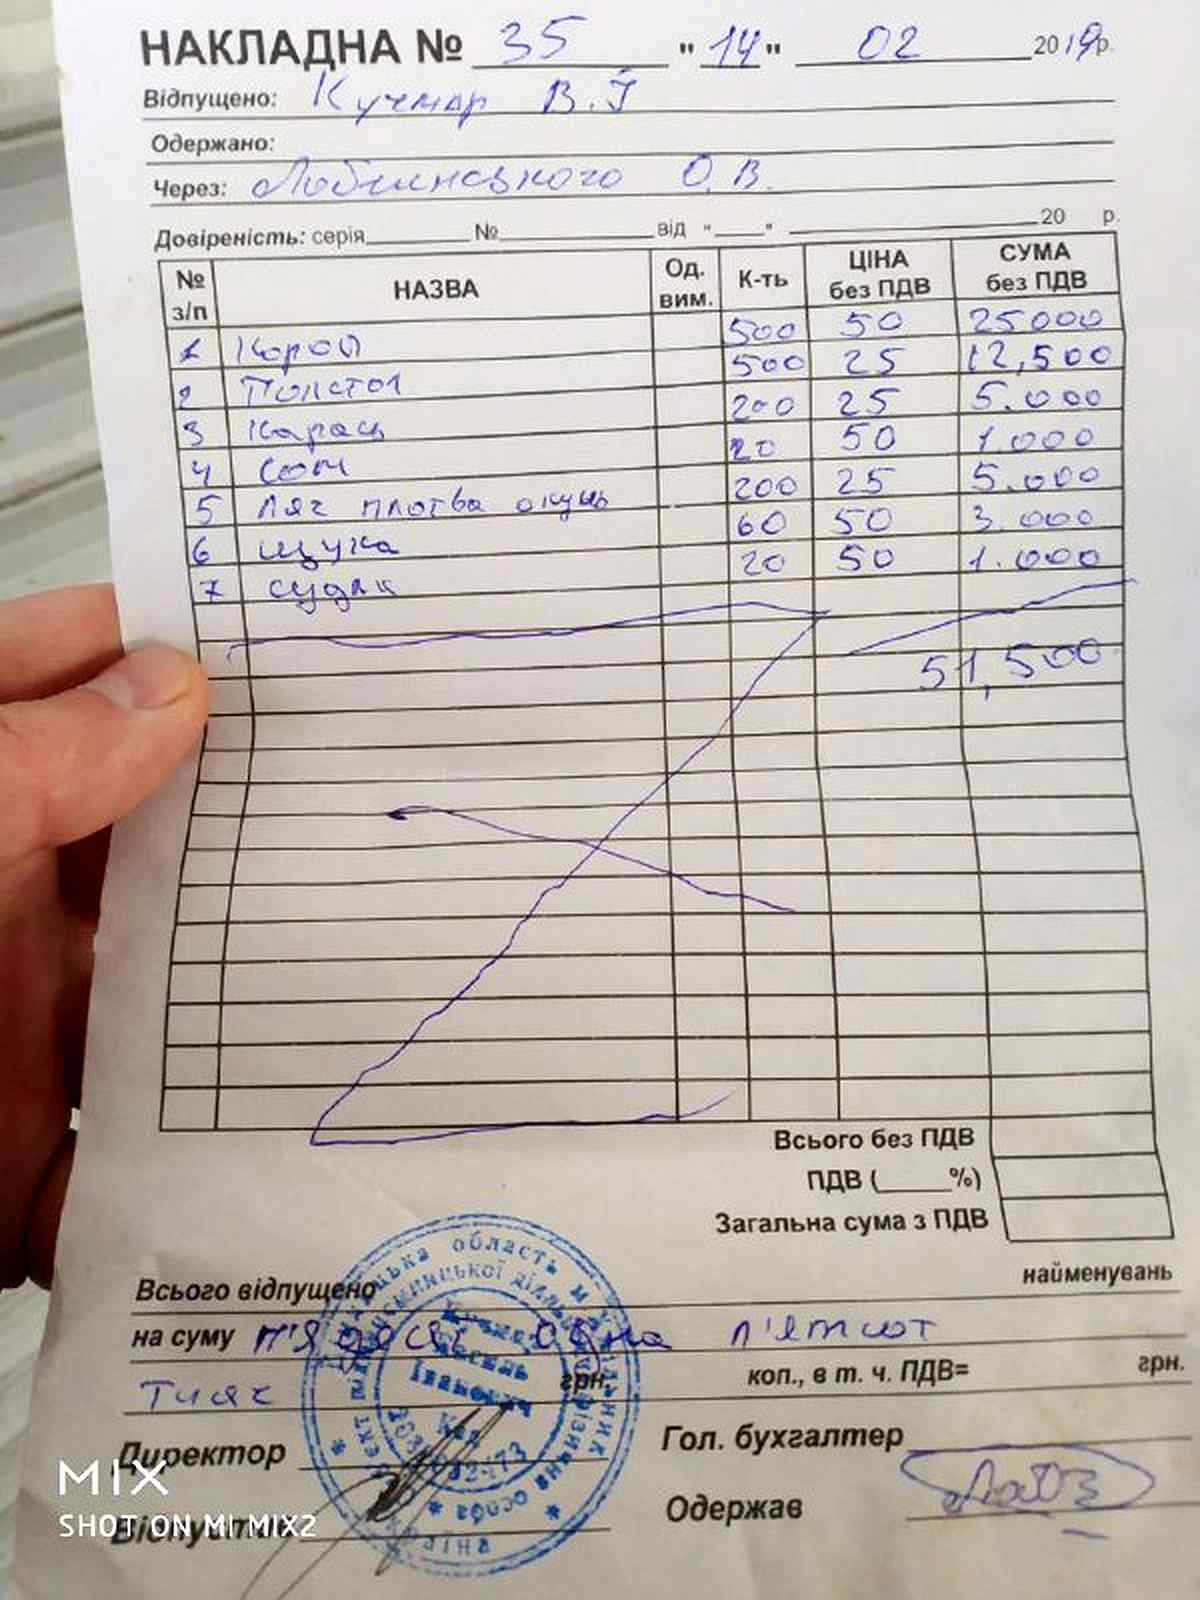 НАКЛАДНА № 35 "14" 02 2019р.
Відпущено: Кучмар В.І
Одержано:
Через: О.В.
Довіреність: серія № від " " 20 р.
№ з/п НАЗВА Од. вим. К-ть ЦІНА без ПДВ СУМА без ПДВ
1 Короп 500 50 25000
2 Толстол 500 25 12,500
3 Карась 200 25 5.000
4 Сом 20 50 1.000
5 Лящ плотва окунь 200 25 5.000
6 щука 60 50 3.000
7 судак 20 50 1.000
51,500
Всього без ПДВ
ПДВ (_____%)
Загальна сума з ПДВ
Всього відпущено найменувань
на суму п'ядесят одна п'ятсот
тисяч грн. коп., в т. ч. ПДВ= грн.
Директор Гол. бухгалтер
Відпустив Одержав
область
фізична особа
Іванович
Код
MIX
SHOT ON MI MIX2